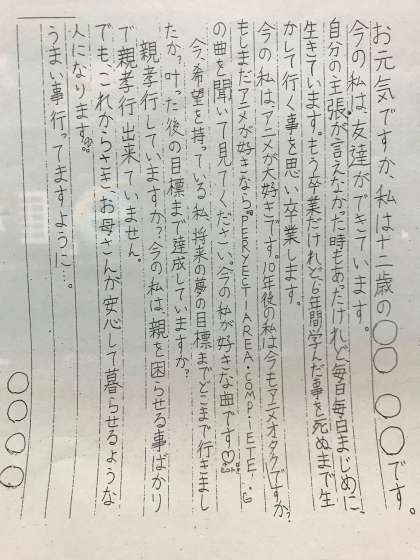 お元気ですか、私は十二歳の〇〇 〇〇です。
今の私は、友達ができています。
自分の主張が言えなかった時もあったけれど毎日毎日まじめに、
生きています。もう卒業だけれど、6年間学んだ事を死ぬまで生
かして行く事を思い卒業します。
今の私は、アニメが大好きです。10年後の私は今もアニメオタクですか?
もしまだアニメが好きなら
の曲を聞いて見てください。今の私が好きな曲です♡
今、希望を持っている私、将来の夢の目標までどこまで行きまし
たか?叶った後の目標まで達成していますか?
親孝行していますか?今の私は、親を困らせる事ばかり
で親孝行出来ていません。
でも、これからさき、お母さんが安心して暮らせるような
人になります。
うまい事行ってますように…。
〇〇〇〇